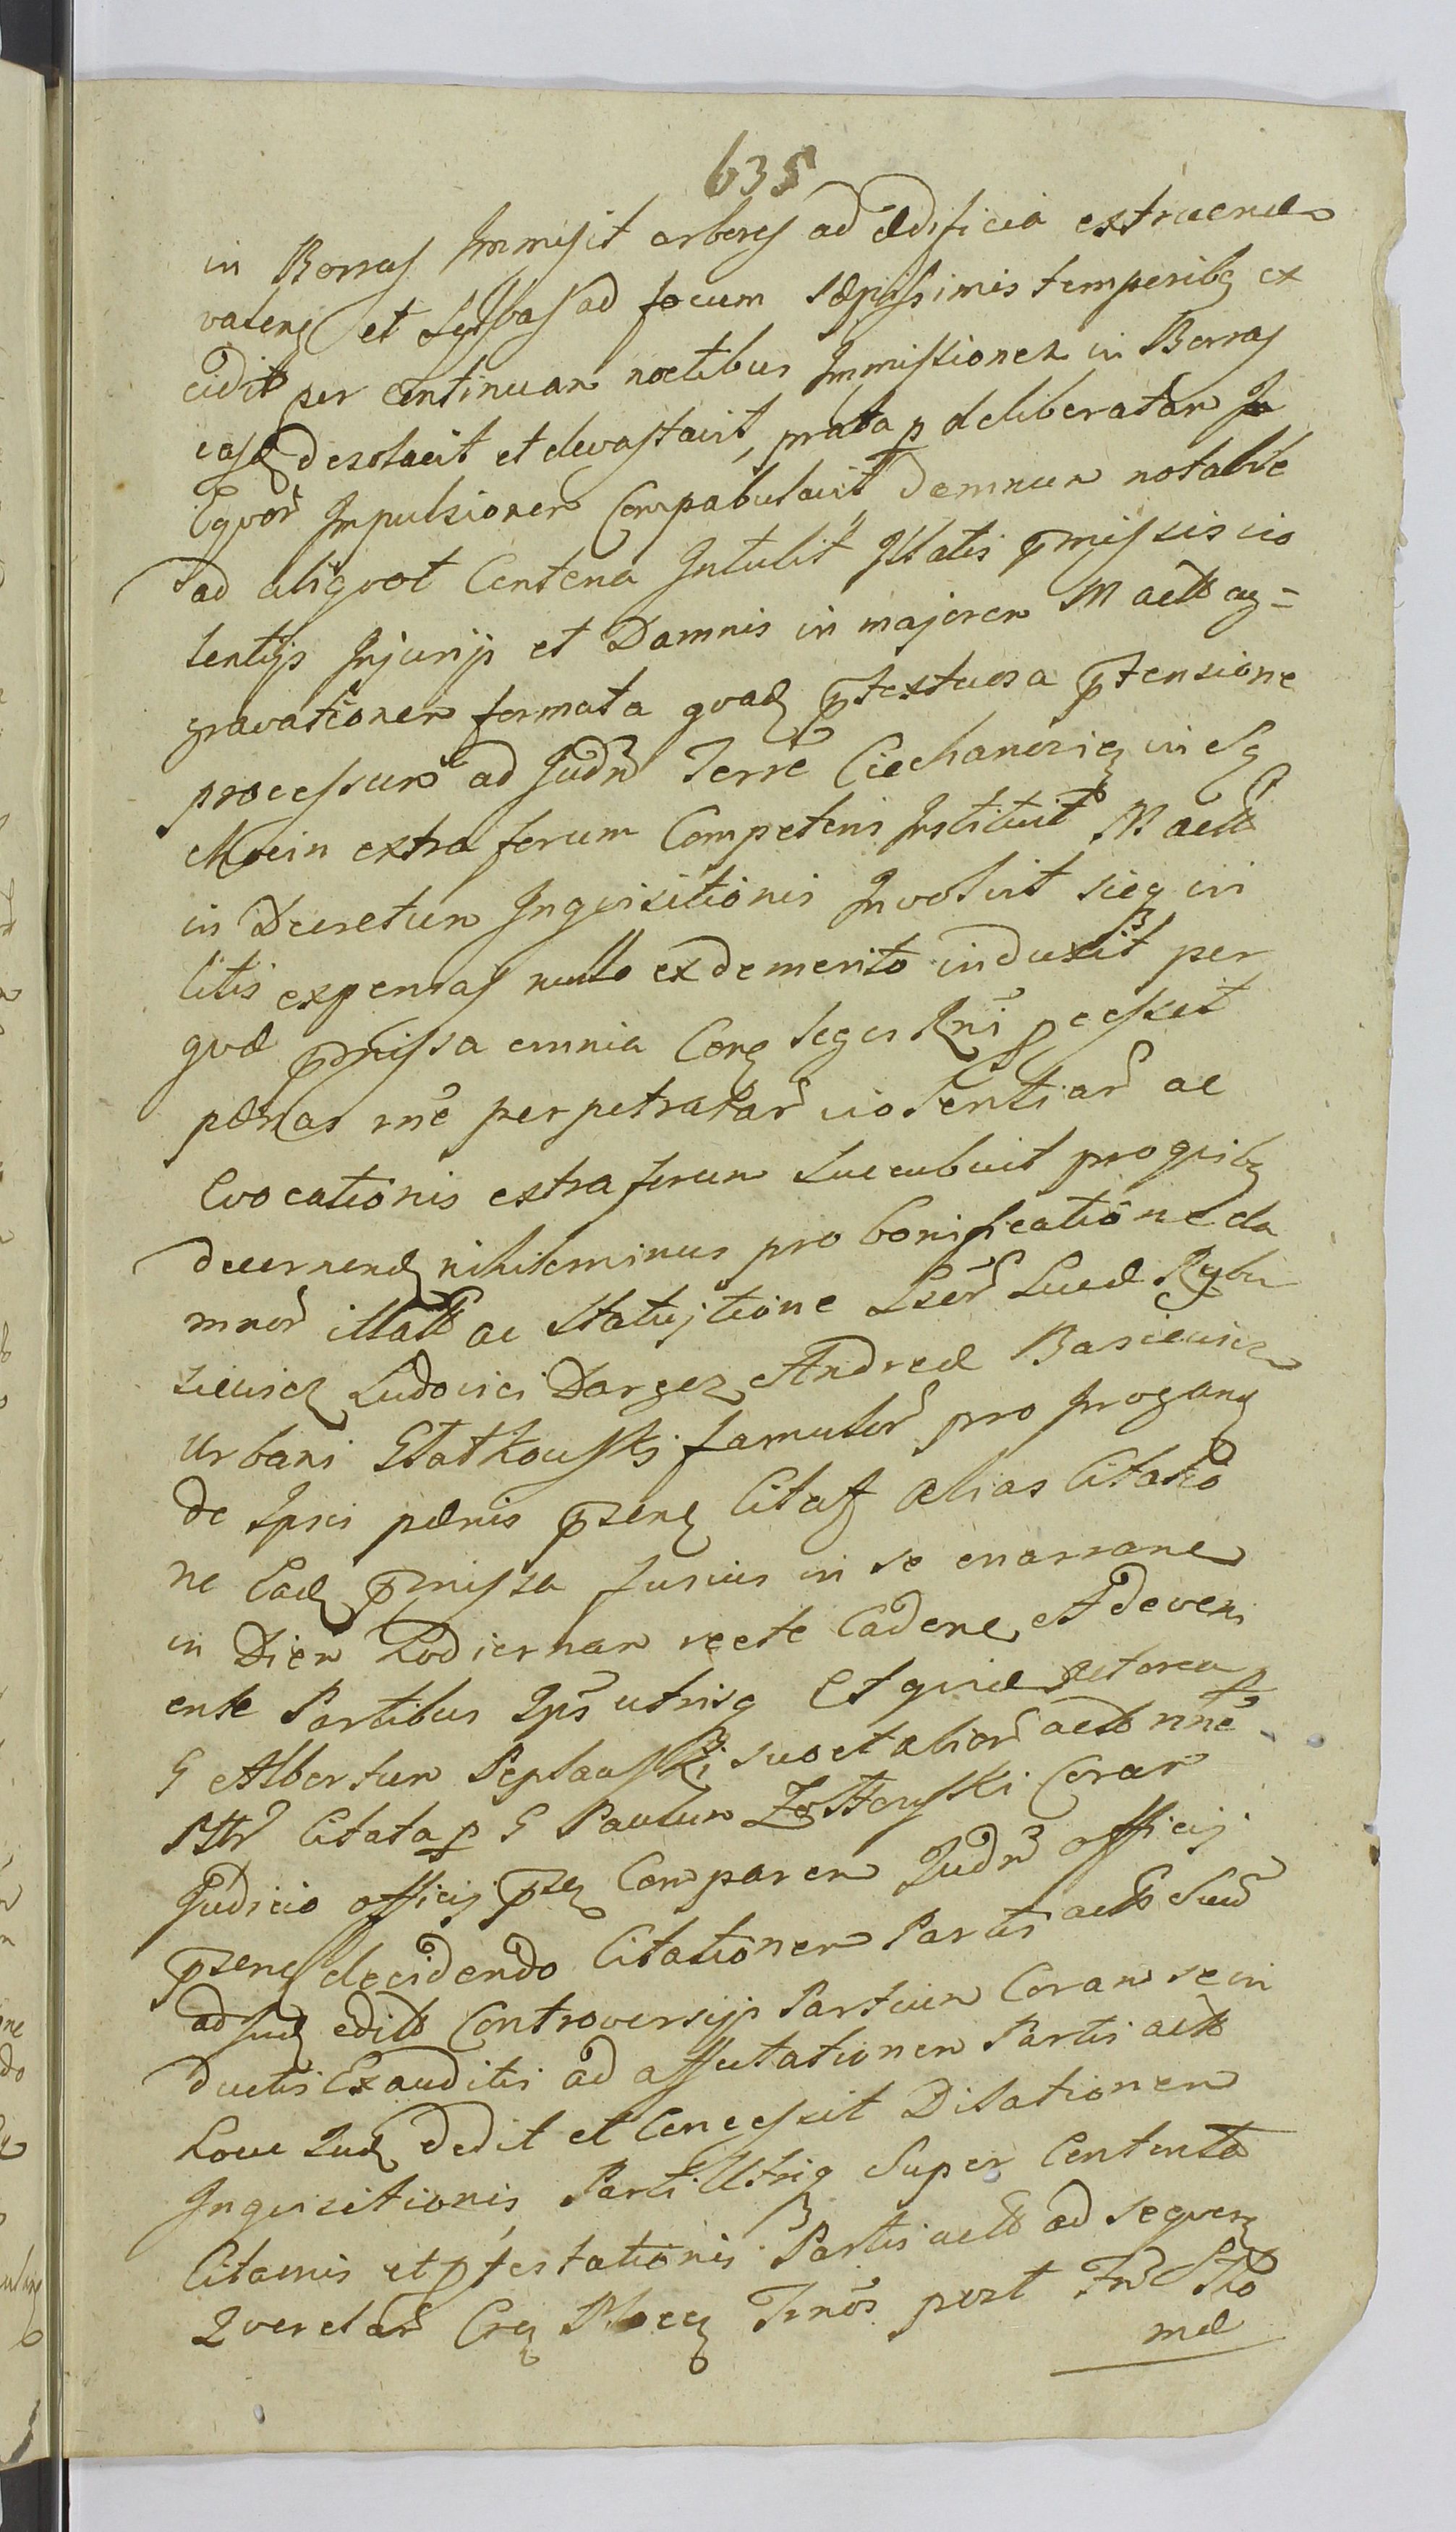 635
in Borras Immisit arbores ad ædificia extruend
valen et Sylvas ad focum sæpissimis temporibq ex
cidit per continuam noctibus Immissionem in Borras
easq desolavit et devastavit, prata p deliberatam In
Equor Impulsionem Compabulavit Damnum notabile
ad aliqvot Centena Intulit Illatis pmissis vio
lentijs Injurijs et Damnis in majorem M actt ag=
gravationem formata qvad ptextuosa ptensione
processum ad Judm Terre Ciechanovien in Sq
Mocin extra forum Competens Instituit M actt
in Decretum Inqvisitionis Involvit sicq in
litis expensas nullo ex demerito induxit per
qvæ pmissa omnia Conq leges Rni pcessit
pænas rne perpetratar violentiar ac
Evocationis extra forum succubuit pro qvibq
decernend nihilominus pro bonificatione da
mnor illatt ac statuitione Lser Lucæ Rybi
siewicz Ludovici Dargez Andreæ Basiewicz
Urbani Statkowski famulor pro Irrogand
de Ipsis pænis pzend Citat alias Citatio
ne Ead pmissa fusius in se enarrane
in Diem hodiernam recte Cadene et deveni
ente Partibus Ips utrisq Et qvidem Actorea
G Albertum Peplawski suo et alior actt nne
Citata p G Paulum Zołtowski Coram
Judicio officij pz Comparen Judm officij
pzens decidendo Citationem Partis actt
ad Jud editt Controversijs Partium Coram se in
ductis Exauditis ad affectationem Partis actt
Jud dedit et Concessit Dilationem
Inqvisitionis Parti Utriq Super Contenta
Citaonis et ptestationis Partis actt ad seqven
Qverelar Trnos post
mæ